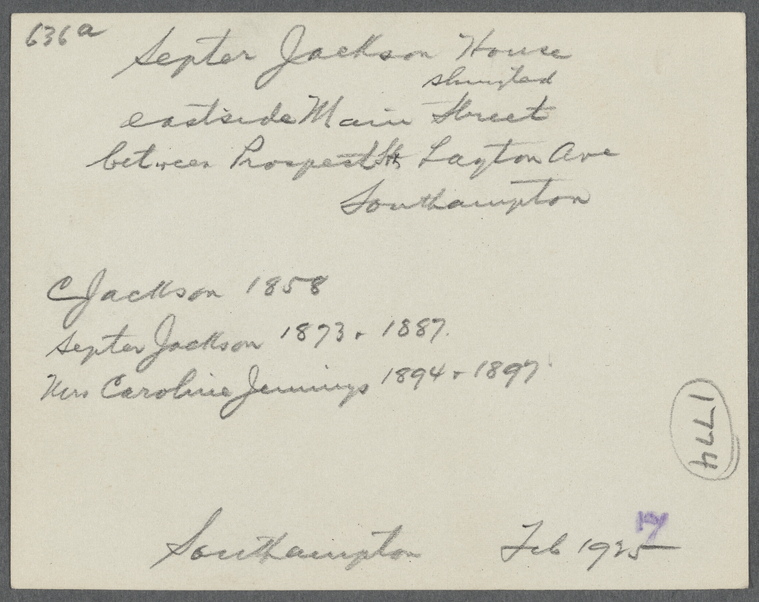 636a
Septer Jackson House
shingled
eastside Main Street
between Prospect St & Layton Ave
Southampton
C Jackson 1858
Septer Jackson 1873 & 1887.
Mrs Caroline Jennings 1894 & 1897
1774
7
Southampton Feb 1925